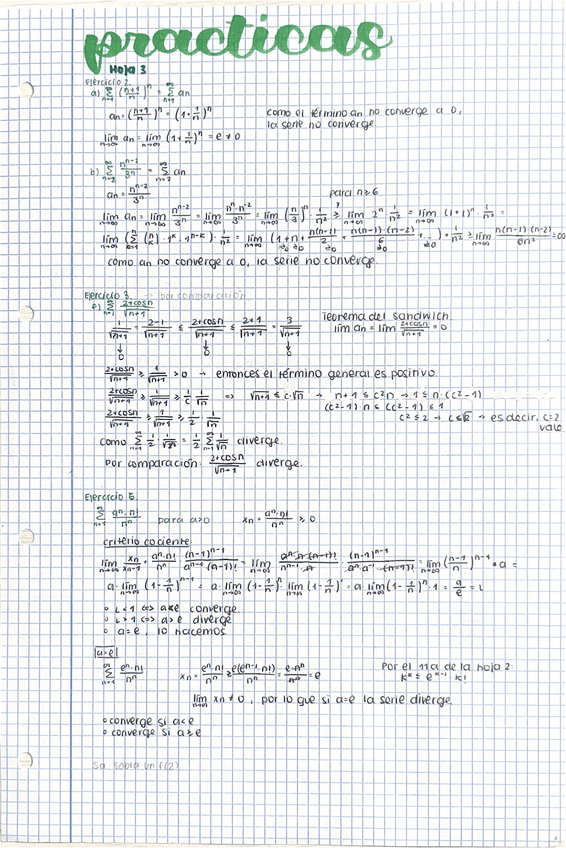 practicas
Hoja 3
Ejercicio 2.
a) ∑_{n=1}^{∞} (n+1/n)^n = ∑_{n=1}^{∞} an
an = (n+1/n)^n = (1+1/n)^n
como el término an no converge a 0,
la serie no converge
lím_{n→∞} an = lím_{n→∞} (1+1/n)^n = e ≠ 0
b) ∑_{n=2}^{∞} n^{n-2}/3^n = ∑_{n=2}^{∞} an
an = n^{n-2}/3^n
para n≥6
lím_{n→∞} an = lím_{n→∞} n^{n-2}/3^n = lím_{n→∞} n^n·n^{-2}/3^n = lím_{n→∞} (n/3)^n · 1/n² ≥ lím_{n→∞} 2^n · 1/n² = lím_{n→∞} (1+1)^n · 1/n² =
lím_{n→∞} (∑ (n k) · 1^k · 1^{n-k}) · 1/n² = lím_{n→∞} (1+n+ n(n-1)/2 + n(n-1)(n-2)/6 + ...) · 1/n² ≥ lím_{n→∞} n(n-1)(n-2)/6n² = ∞
como an no converge a 0, la serie no converge
Ejercicio 3. por comparación
∑_{n=1}^{∞} 2+cosn/√n+1
1/√n+1 = 2-1/√n+1 ≤ 2+cosn/√n+1 ≤ 2+1/√n+1 = 3/√n+1
Teorema del sandwich
lím an = lím_{n→∞} 2+cosn/√n+1 = 0
↓ ↓ ↓
0 0 0
2+cosn/√n+1 ≥ 1/√n+1 > 0 → entonces el término general es positivo
2+cosn/√n+1 ≥ 1/√n+1 ≥ 1/c · 1/√n ⇒ √n+1 ≤ c√n → n+1 ≤ c²n → 1 ≤ n·(c²-1)
(c²-1)·n ≤ (c²-1) ≤ 1
2+cosn/√n+1 ≥ 1/√n+1 ≥ 1/2 · 1/√n
c² ≤ 2 → c ≤ √2 → es decir, c=2
vale
como ∑_{n=1}^{∞} 1/2 · 1/√n = 1/2 ∑_{n=1}^{∞} 1/√n diverge.
por comparación 2+cosn/√n+1 diverge.
∑_{n=1}^{∞} a^n·n!/n^n para a>0 xn = a^n·n!/n^n ≥ 0
criterio cociente
lím_{n→∞} xn/xn-1 = a^n·n!/n^n · (n-1)^{n-1}/a^{n-1}·(n-1)! = lím_{n→∞} a^n·n·(n-1)!/n^n·n · (n-1)^{n-1}/a^n·a^{-1}·(n-1)! = lím_{n→∞} (n-1/n)^{n-1} · a =
a·lím_{n→∞} (1-1/n)^{n-1} = a·lím_{n→∞} (1-1/n)^n · lím_{n→∞} (1-1/n)^{-1} = a lím_{n→∞} (1-1/n)^n · 1 = a/e = L
◦ L<1 ⇔ a<e converge.
◦ L>1 ⇔ a>e diverge
◦ a=e, lo hacemos
a=e
∑_{n=1}^{∞} e^n·n!/n^n
xn = e^n·n!/n^n ≥ e(e^{n-1}·n!)/n^n = e·n^n/n^n = e
Por el 11a de la hoja 2
k^k ≤ e^{k-1} k!
lím_{n→∞} xn ≠ 0, por lo que si a=e la serie diverge.
◦ converge si a<e
◦ converge si a≥e